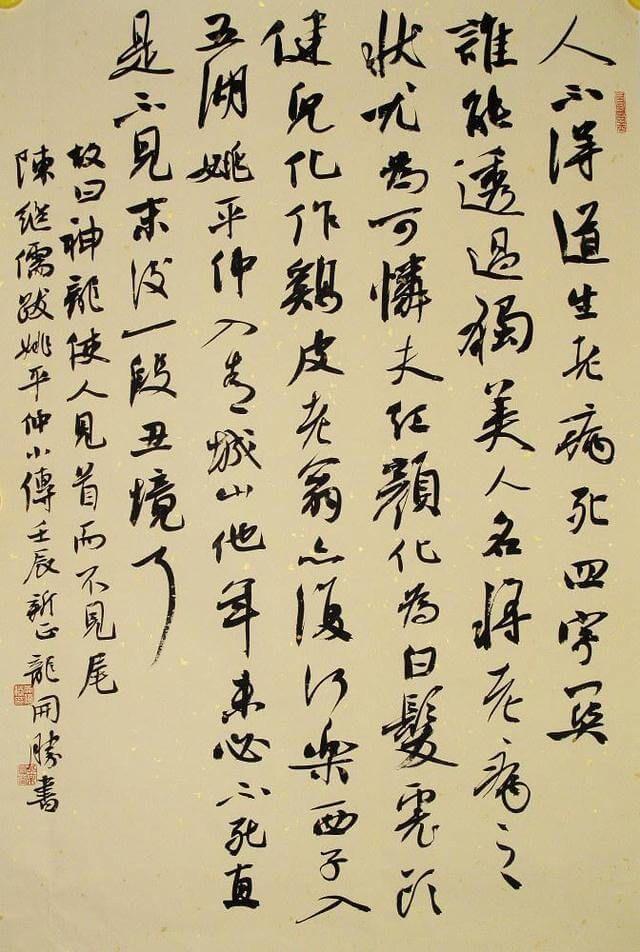 人不得道生老病死四字關
誰能透過獨美人名將老病之
狀尤為可憐夫紅顏化為白髮虎頭
健兒化作鷄皮老翁亦復何樂西子入
五湖姚平仲入青城山他年未必不死直
是不見末後一段丑境了
故曰神龍使人見首而不見尾
陳継儒跋姚平仲小傳壬辰新正龍開勝書